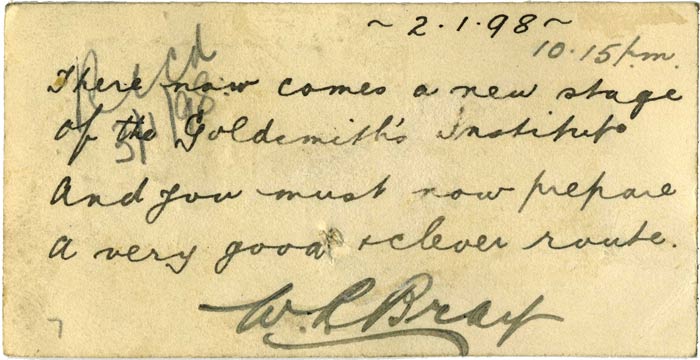 ~ 2.1.98 ~
10.15 p.m.
Rec'd
3/1/98
There now comes a new stage
Of the Goldsmith's Institute
And you must now prepare
A very good & clever route.
W. R. Bray